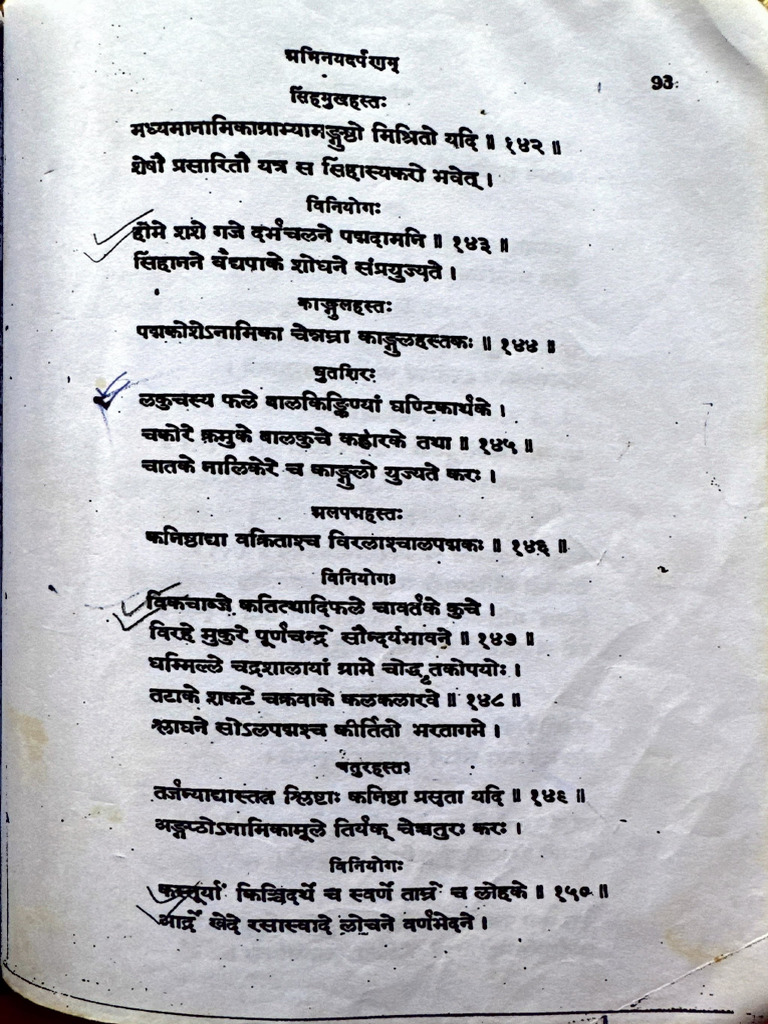 अभिनयदर्पणम्
93
सिंहमुखहस्तः
मध्यमानामिकाग्राभ्यामङ्गुष्ठो मिश्रितो यदि ॥ १४२ ॥
शेषौ प्रसारितौ यत्र स सिंहास्यकरो भवेत् ।
विनियोगः
होमे शशे गजे दर्भचलने पद्मदामनि ॥ १४३ ॥
सिंहानने वैद्यपाके शोधने संप्रयुज्यते ।
काङ्गुलहस्तः
पद्मकोशेऽनामिका चेन्नम्रा काङ्गुलहस्तकः ॥ १४४ ॥
धुतशिरः
लकुचस्य फले बालकिङ्किण्यां घण्टिकार्थके ।
चकोरे क्रमुके बालकुचे कह्लारके तथा ॥ १४५ ॥
चातके नालिकेरे च काङ्गुलो युज्यते करः ।
अलपद्महस्तः
कनिष्ठाद्या वक्रिताश्च विरलाश्चालपद्मकः ॥ १४६ ॥
विनियोगः
विकचाब्जे कपित्थादिफले चावर्तके कुचे ।
विरहे मुकुरे पूर्णचन्द्रे सौन्दर्यभावने ॥ १४७ ॥
धम्मिल्ले चद्रशालायां ग्रामे चोद्धृतकोपयोः ।
तटाके शकटे चक्रवाके कलकलारवे ॥ १४८ ॥
श्लाघने सोऽलपद्मश्च कीर्तितो भरतागमे ।
चतुरहस्तः
तर्जन्याद्यास्तत्र श्लिष्टाः कनिष्ठा प्रसृता यदि ॥ १४९ ॥
अङ्गुष्ठोऽनामिकामूले तिर्यक् चेच्चतुरः करः ।
विनियोगः
कस्तूर्यां किञ्चिदर्थे च स्वर्णे ताम्रे च लोहके ॥ १५० ॥
आर्द्रे खेदे रसास्वादे लोचने वर्णभेदने ।